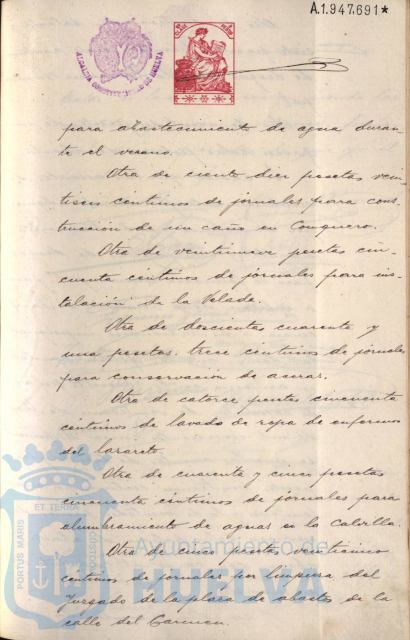 A.1.947.691*
ALCALDIA CONSTITUCIONAL DE HUELVA
para abastecimiento de agua duran-
te el verano.
Otra de ciento diez pesetas vein-
tiseis centimos de jornales para cons-
trucción de un caño en Conquero.
Otra de veintinueve pesetas cin-
cuenta centimos de jornales para ins-
talación de la Velada.
Otra de doscientas cuarenta y
una pesetas trece centimos de jornales
para conservación de aceras.
Otra de catorce pesetas cincuenta
centimos de lavado de ropa de enfermos
del lazareto.
Otra de cuarenta y cinco pesetas
cincuenta centimos de jornales para
alumbramiento de aguas en la Calvilla.
Otra de cinco pesetas veinticinco
centimos de jornales por limpieza del
Juzgado de la plaza de abastos de la
calle del Carmen.
PORTUS MARIS
ET TERRAE
CUSTODIA
Ayuntamiento de
HUELVA